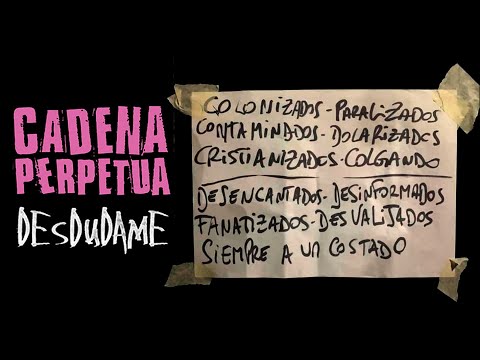 CADENA
PERPETUA
DESDUDAME
COLONIZADOS-PARALIZADOS
CONTAMINADOS-DOLARIZADOS
CRISTIANIZADOS-COLGANDO
DESENCANTADOS-DESINFORMADOS
FANATIZADOS-DESVALIJADOS
SIEMPRE A UN COSTADO